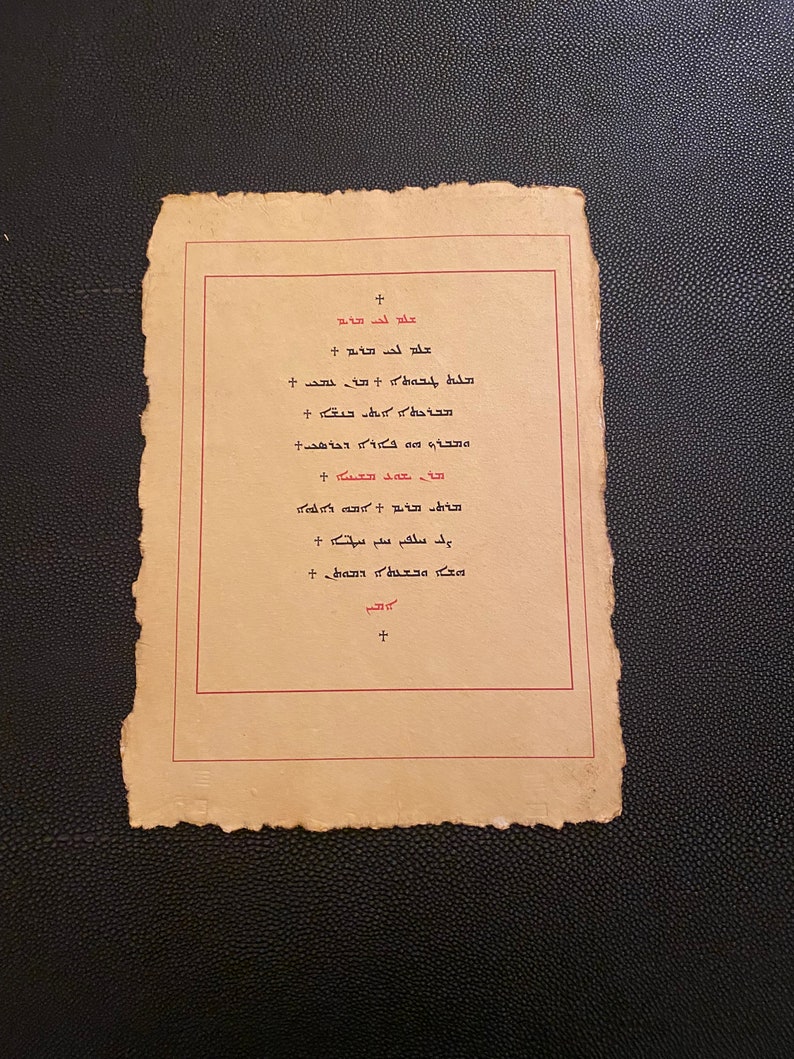 ♱
ܫܠܡ ܠܟܝ ܡܪܝܡ
ܫܠܡ ܠܟܝ ܡܪܝܡ ♱
ܡܠܝܬ ܛܝܒܘܬܐ ♱ ܡܪܢ ܥܡܟܝ ♱
ܡܒܪܟܬܐ ܐܝܬܝ ܒܢܫ̈ܐ ♱
ܘܡܒܪܟ ܗܘ ܦܐܪܐ ܕܟܪܣܟܝ♱
ܡܪܢ ܝܫܘܥ ܡܫܝܚܐ ♱
ܡܪܬܝ ܡܪܝܡ ♱ ܐܡܗ ܕܐܠܗܐ
ܨܠܝ ܚܠܦܝܢ ܚܢܢ ܚܛܝ̈ܐ ♱
ܗܫܐ ܘܒܫܥܬܐ ܕܡܘܬܢ ♱
ܐܡܝܢ
♱